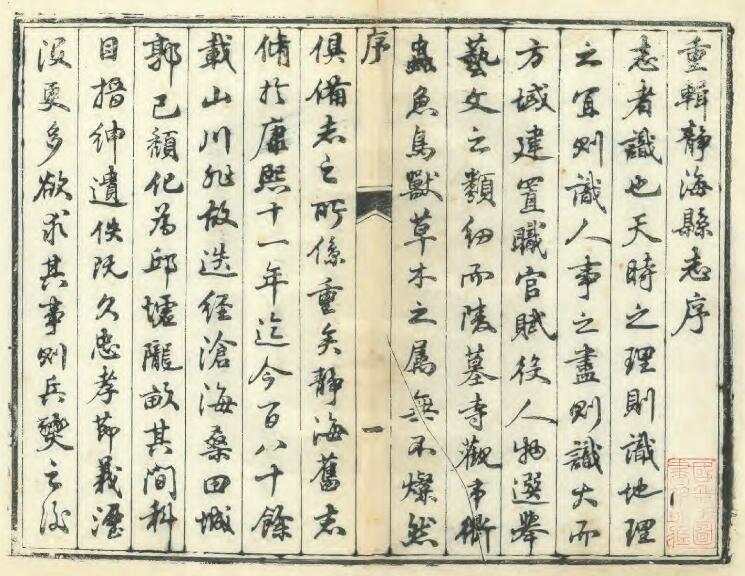 重輯靜海縣志序
志者識也天時之理則識地理
之宜則識人事之盡則識大而
方域建置職官賦役人物選舉
藝文之類細而陵墓寺觀市衢
蟲魚鳥獸草木之屬無不燦然
序
一
俱備志之所係重矣靜海舊志
脩於康熙十一年迄今百八十餘
載山川雖故迭經滄海桑田城
郭已頹化為邱墟隴畝其間科
目搢紳遺佚既久忠孝節義湮
沒更多欲求其事則兵燹之後